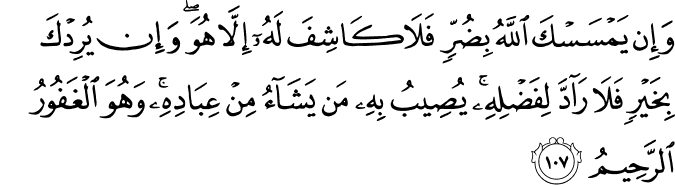 وَإِن يَمْسَسْكَ ٱللَّهُ بِضُرٍّ فَلَا كَاشِفَ لَهُۥٓ إِلَّا هُوَ ۖ وَإِن يُرِدْكَ
بِخَيْرٍ فَلَا رَآدَّ لِفَضْلِهِۦ ۚ يُصِيبُ بِهِۦ مَن يَشَآءُ مِنْ عِبَادِهِۦ ۚ وَهُوَ ٱلْغَفُورُ
ٱلرَّحِيمُ ١٠٧